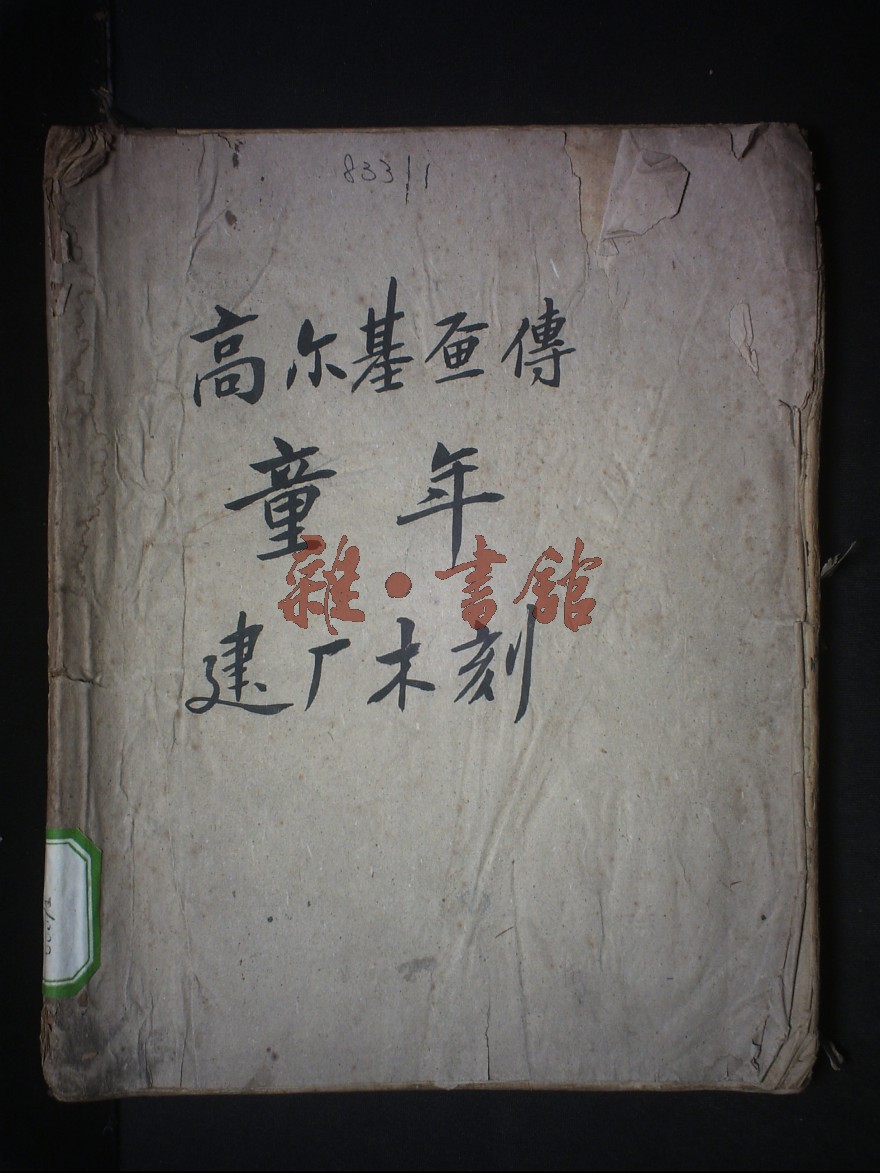 833/1
高尔基画傳
童年
雜·書館
建厂木刻